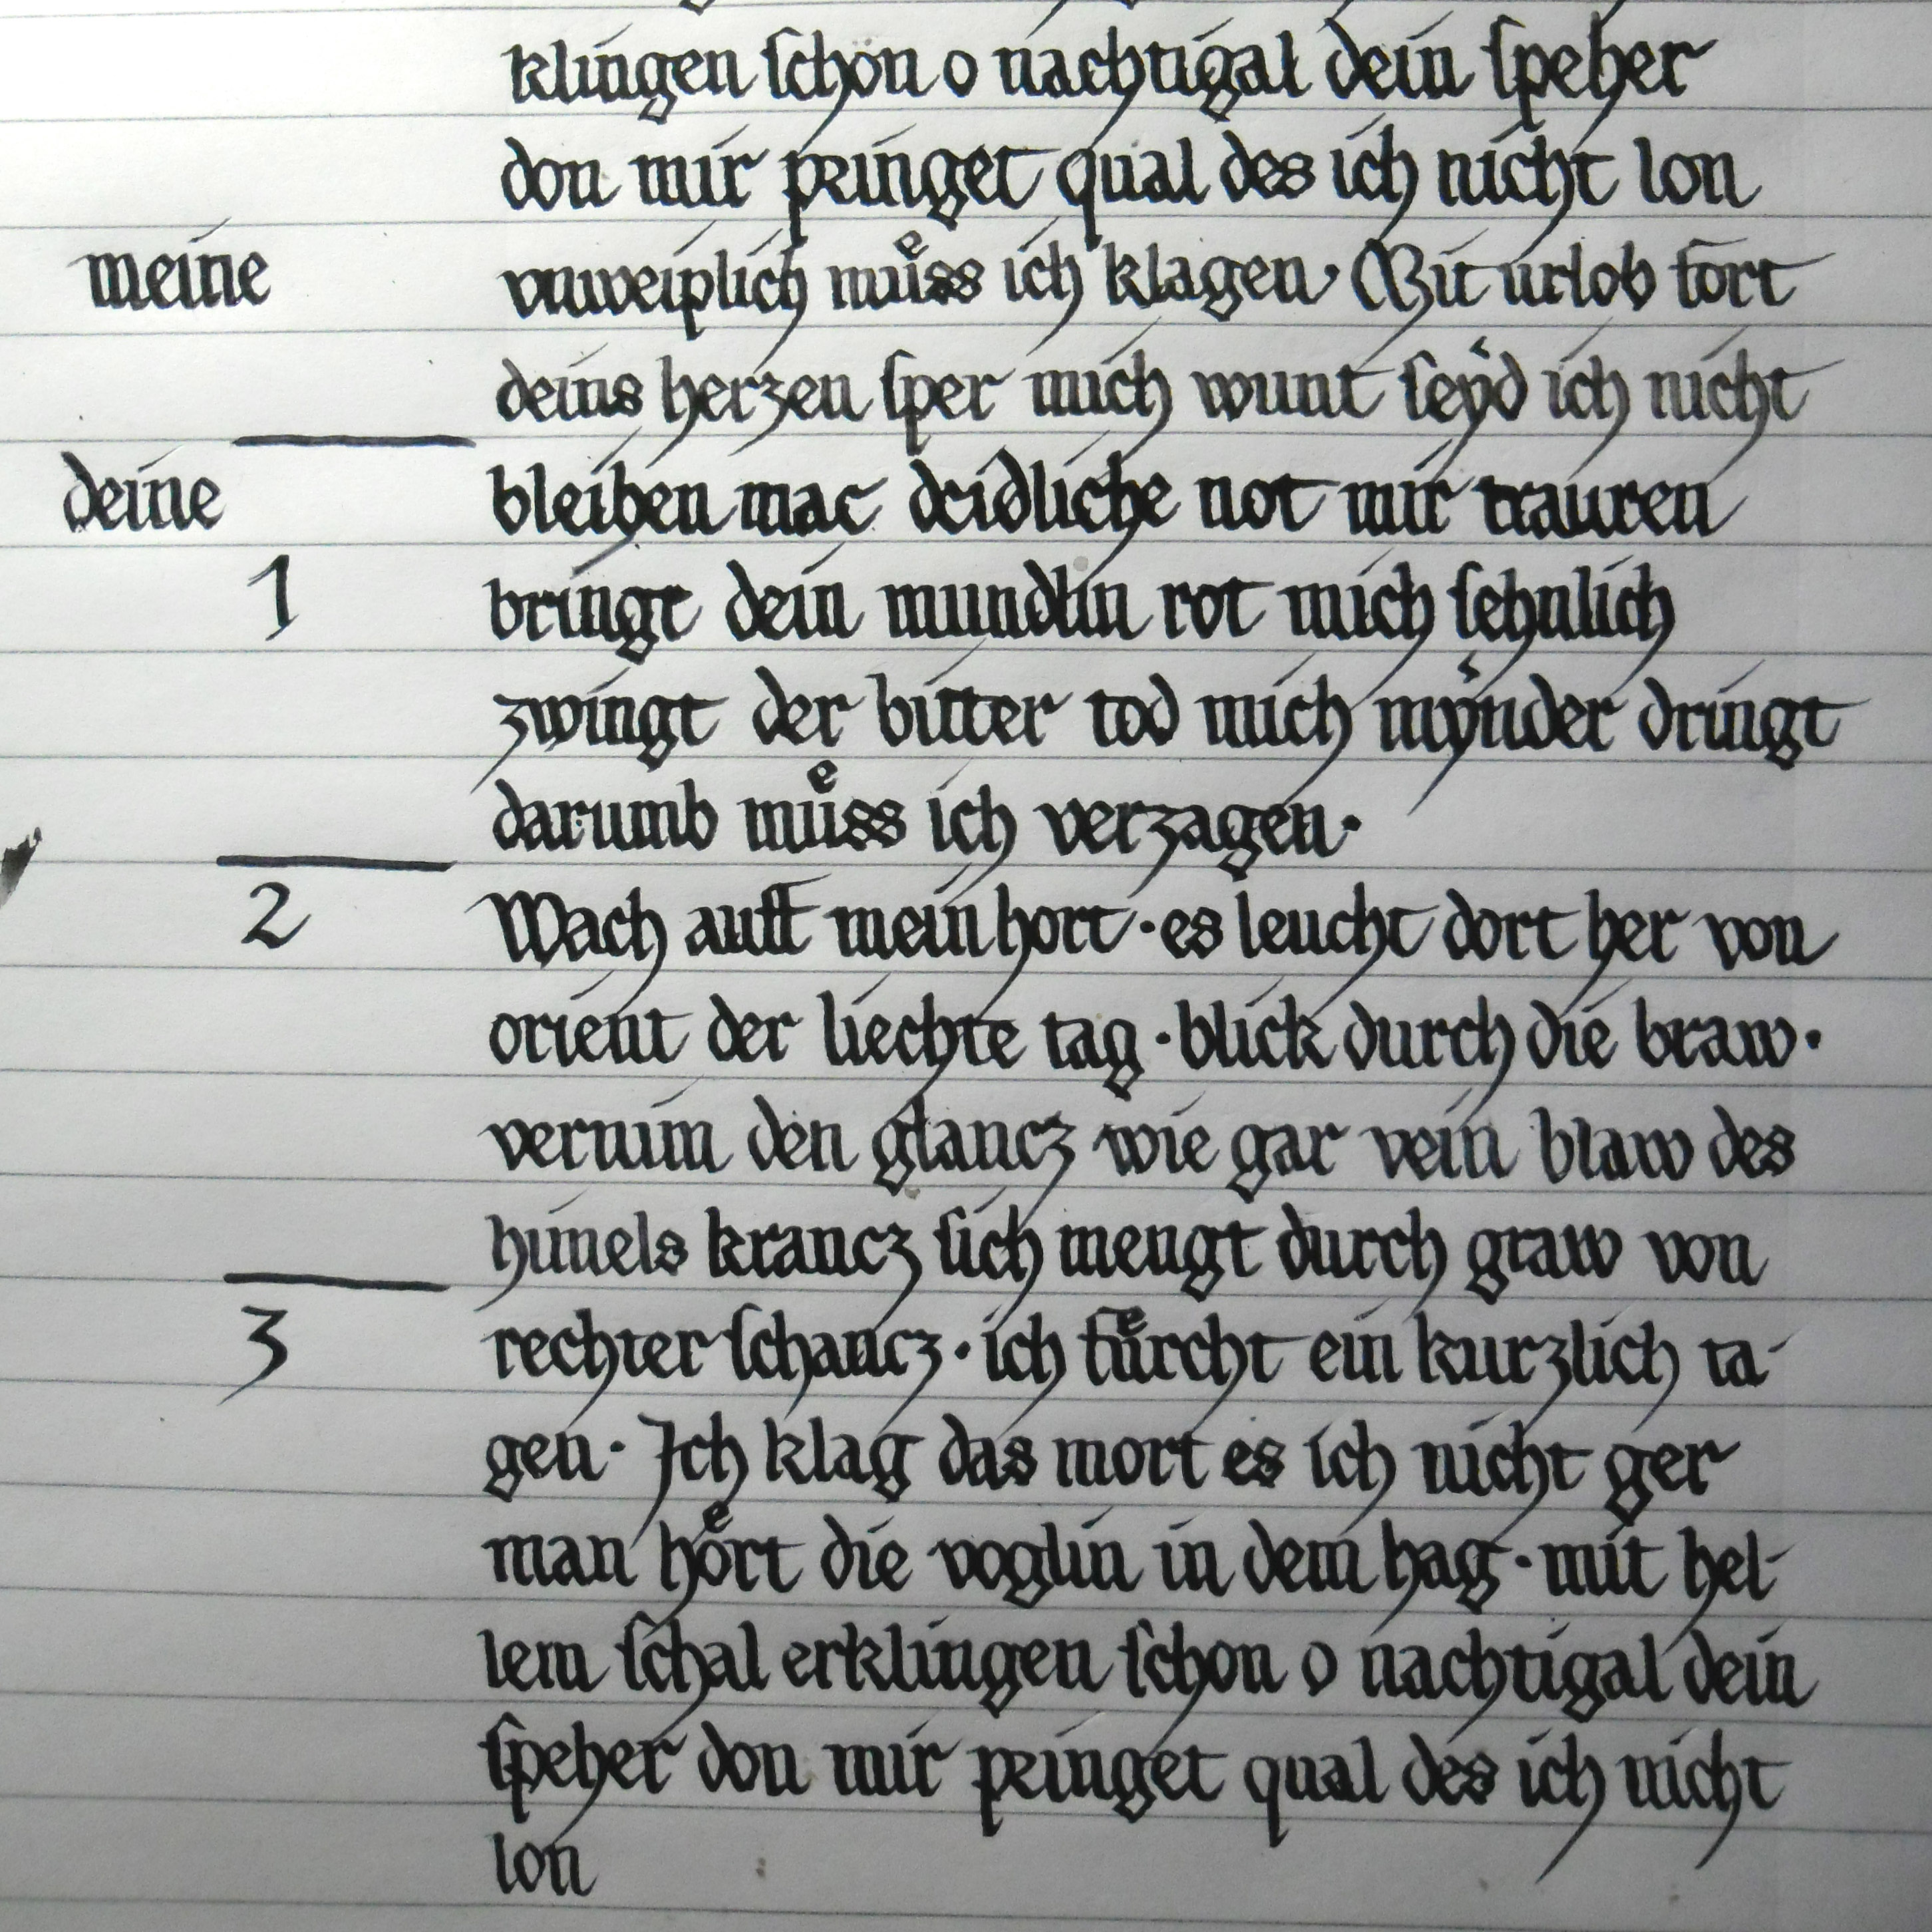 klingen ſchon o nachtigal dein ſpeher
don mir pringet qual des ich nicht lon
meine vnweiplich muͤss ich klagen· Mit urlob fort
deins herzen ſper mich wunt ſeyd ich nicht
deine bleiben mac ſcidliche not mir trauren
1 bringt dein mundlin rot mich ſehnlich
zwingt der bitter tod mich mynder dringt
darumb muͤss ich verzagen·
2 Wach auff mein hort · es leucht dort her von
orient der liechte tag · blick durch die braw·
vernim den glancz wie gar vein blaw des
himels krancz ſich mengt durch graw von
3 rechter ſchancz · ich fuͤrcht ein kurzlich ta-
gen· Ich klag das mort es ich nicht ger
man hoͤrt die voglin in dem hag · mit hel-
lem ſchal erklingen ſchon o nachtigal dein
ſpeher don mir pringet qual des ich nicht
lon